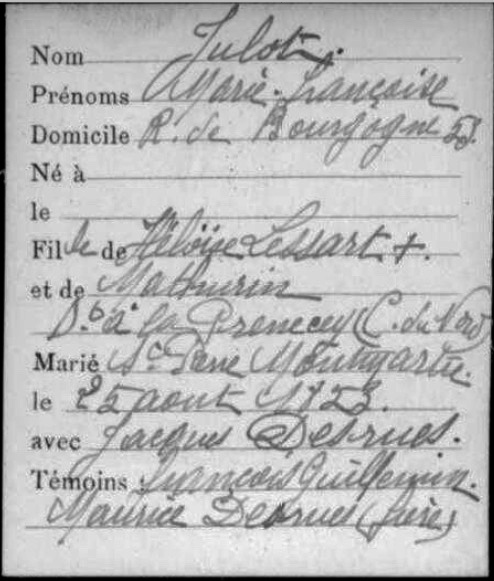 Nom Julot.
Prénoms Marie-Françoise
Domicile R. de Bourgogne
Né à
le
Fille de Héloïse Lessart +.
et de Mathurin
à la (C. du Nord)
Marié
le 25 aout
avec Jacques Desrues.
Témoins : François Guillemin.
Maurice Desrues (frère)